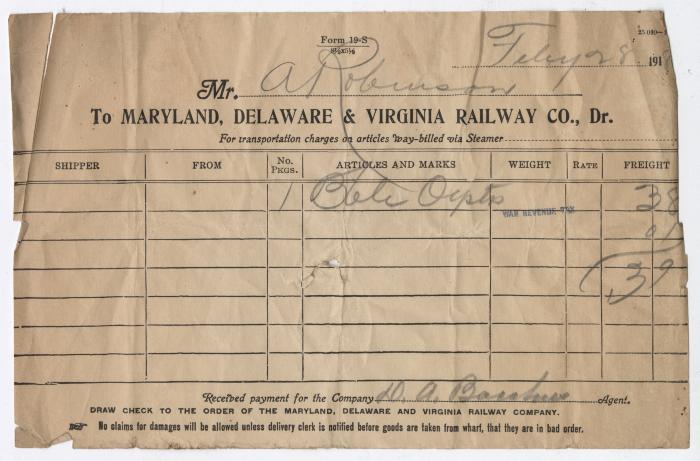 Form 19-S
8½x5½
25 000—
Feby 28 191
Mr. A Robinson
To MARYLAND, DELAWARE & VIRGINIA RAILWAY CO., Dr.
For transportation charges on articles way-billed via Steamer
SHIPPER FROM No. PKGS. ARTICLES AND MARKS WEIGHT RATE FREIGHT
1 Oysters 38
WAR REVENUE TAX 01
39
Received payment for the Company Agent.
DRAW CHECK TO THE ORDER OF THE MARYLAND, DELAWARE AND VIRGINIA RAILWAY COMPANY.
No claims for damages will be allowed unless delivery clerk is notified before goods are taken from wharf, that they are in bad order.